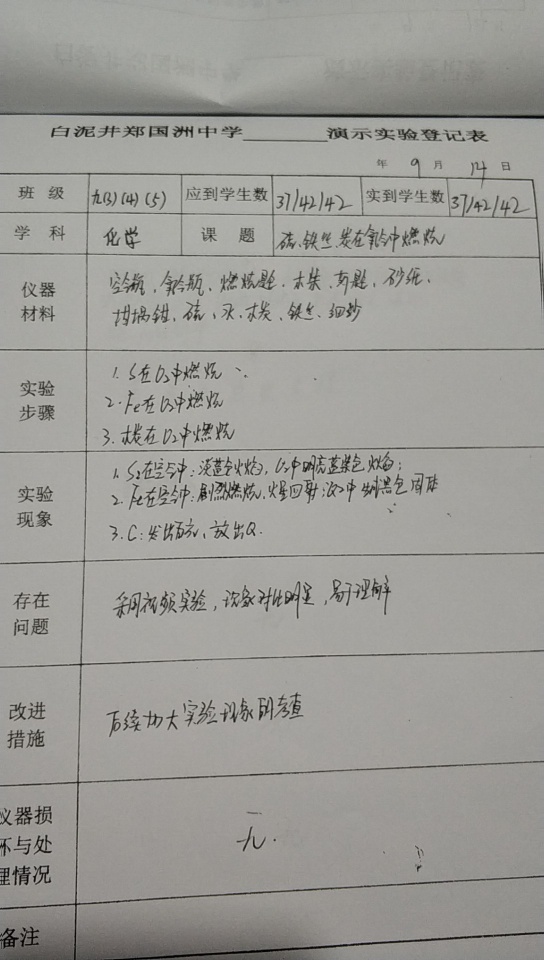 白泥井郑国洲中学______演示实验登记表
年 9 月 14 日
班 级 九(3)(4)(5) 应到学生数 37/42/42 实到学生数 37/42/42
学 科 化学 课 题 硫、铁丝、炭在氧气中燃烧
仪器
材料
空气瓶、氧气瓶、燃烧匙、木炭、药匙、砂纸、
坩埚钳、硫、水、木炭、铁丝、细沙
实验
步骤
1. S在O₂中燃烧
2. Fe在O₂中燃烧
3. 木炭在O₂中燃烧
实验
现象
1. S在空气中:淡蓝色火焰,O₂中明亮蓝紫色火焰;
2. Fe在空气中:剧烈燃烧,火星四射;O₂中生成黑色固体
3. C:发出白光,放出Q.
存在
问题
采用视频实验,现象对比明显,易于理解
改进
措施
后续加大实验现象的考查
仪器损
坏与处
理情况
无.
备注